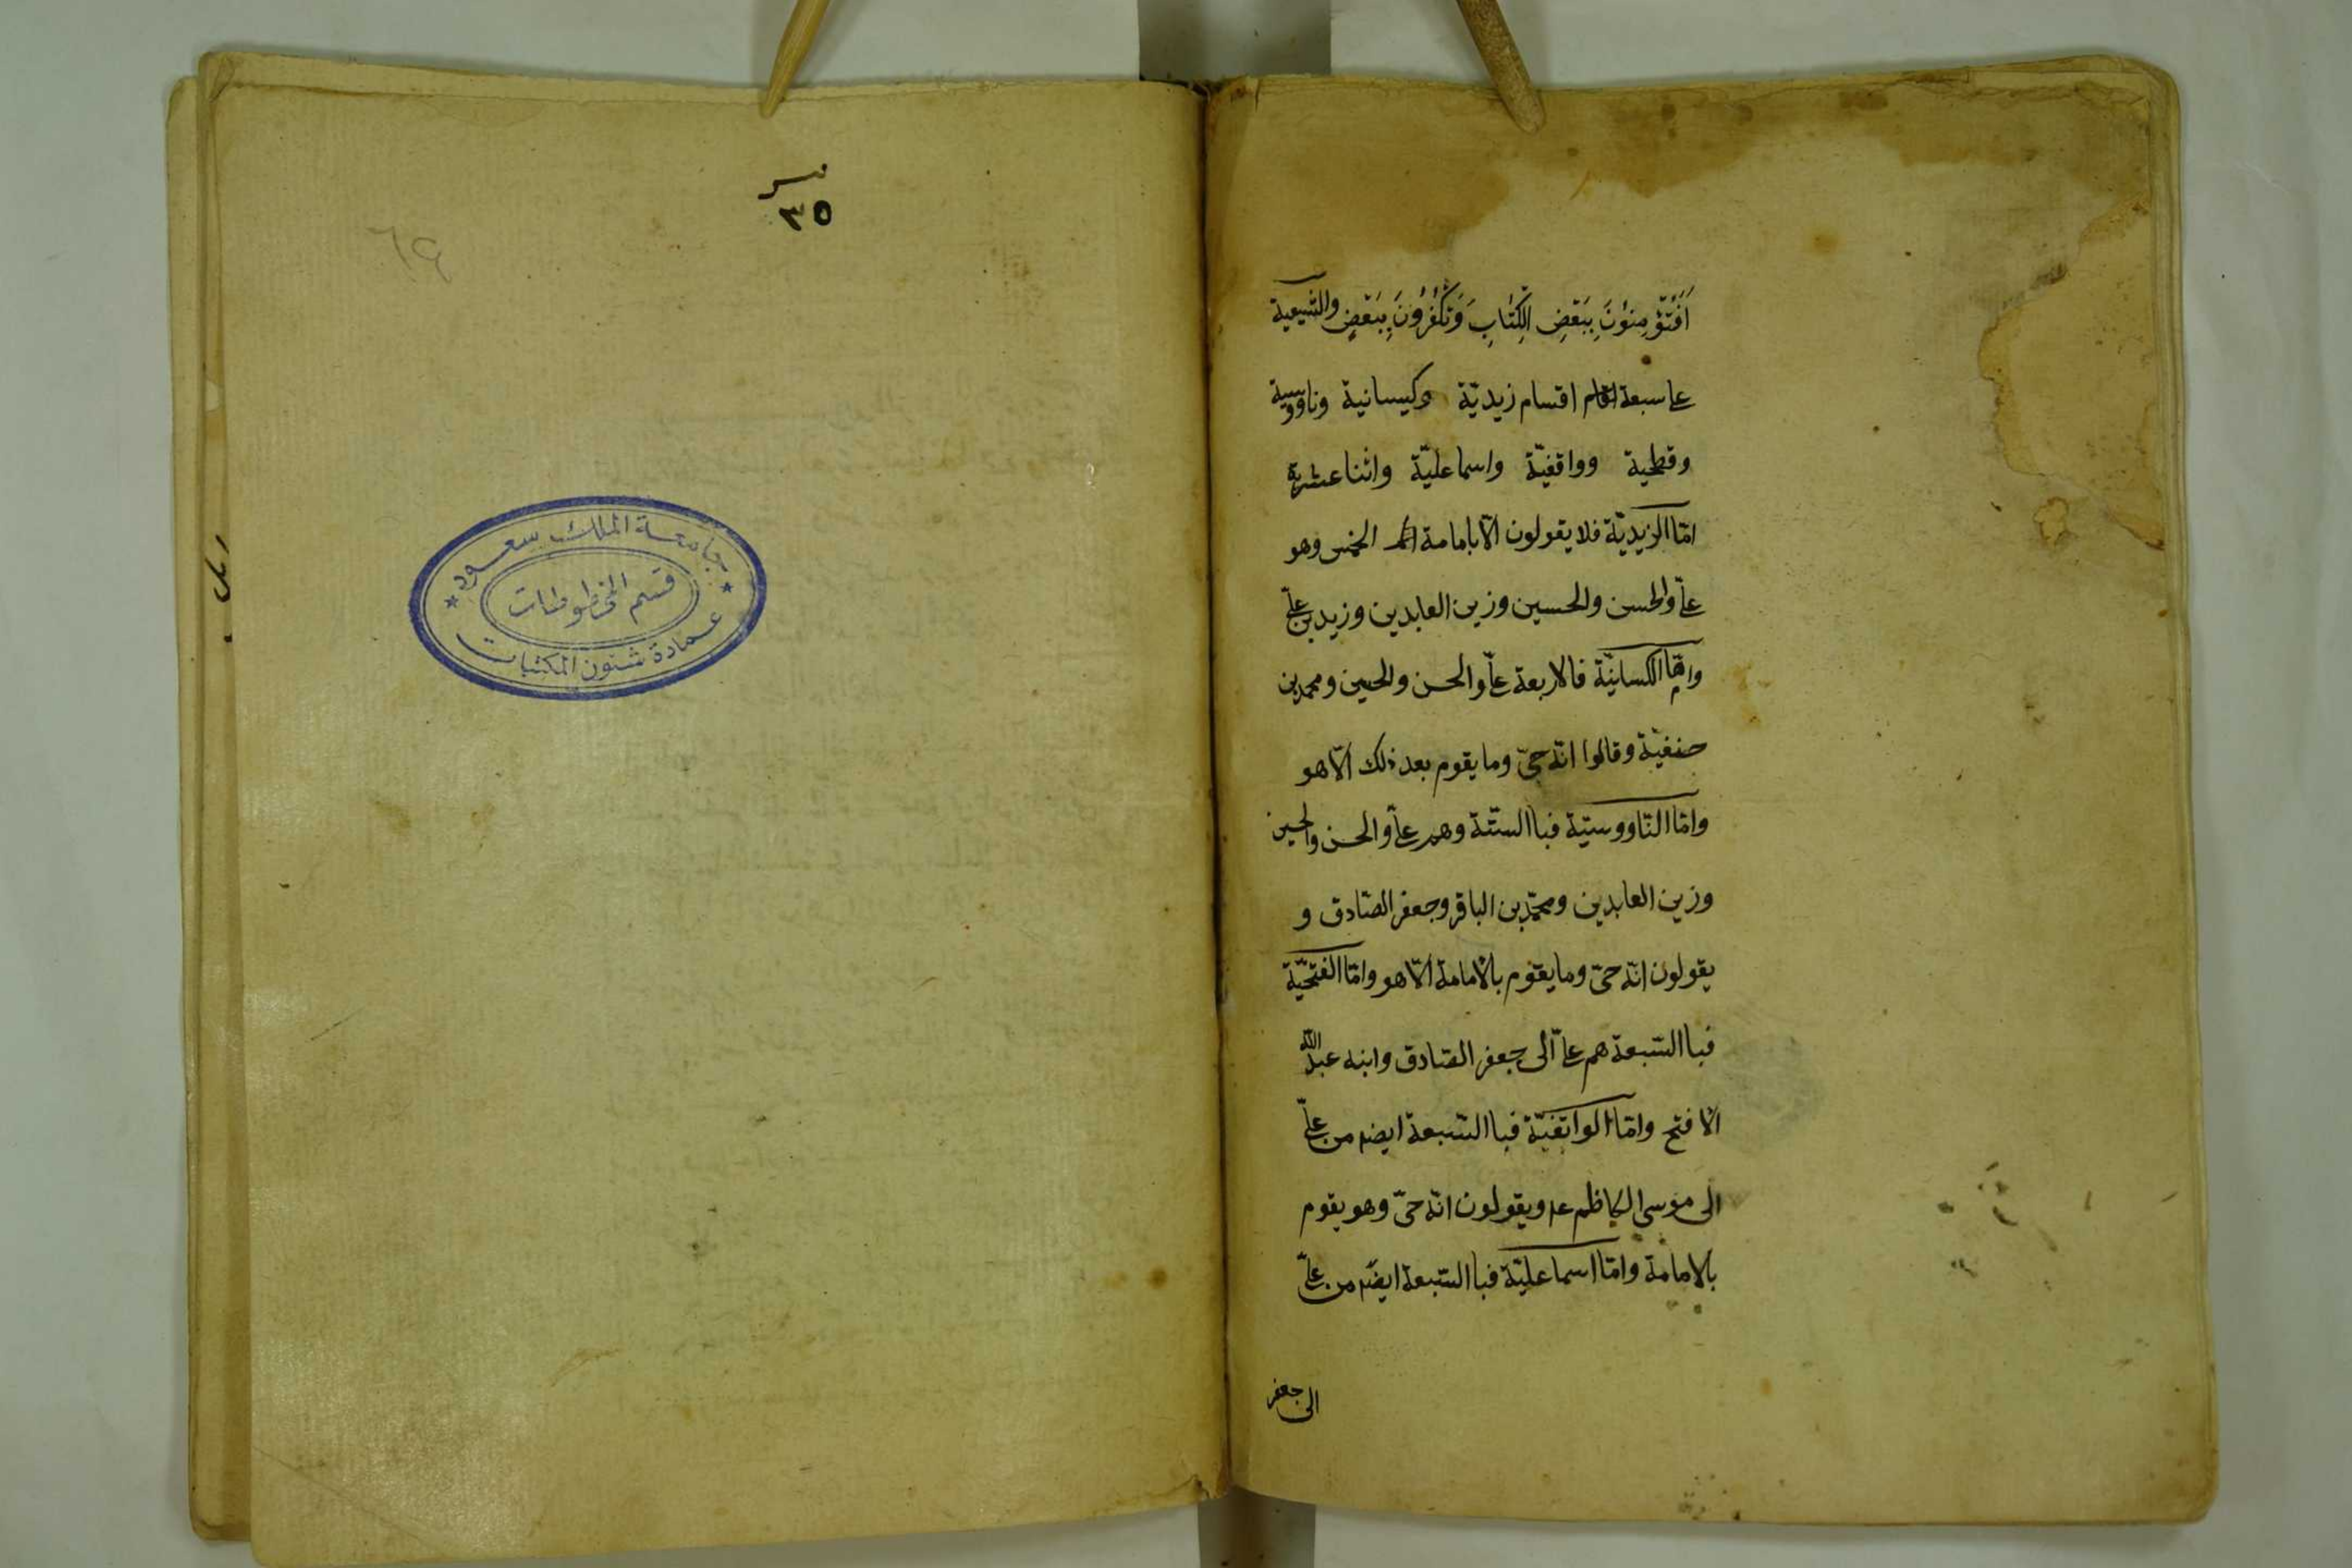 اَفَتُؤْمِنوُنَ بِبَعْضِ الْكِتَابِ وَتَكْفُرُونَ بِبَعْضٍ والشيعية
على سبعة اقسام زيديّة وكيسانية وناووسية
وفطحية وواقفيّة واسماعليّة واثنا عشرية
امّا الزيديّة فلا يقولون الّا بامامة الخمس وهو
علىّ والحسن والحسين وزين العابدين وزيد بن علىّ
وامّا الكسانيّة فالاربعة علىّ والحسن والحسين ومحمد بن
حنفيّة وقالوا انّه حىّ وما يقوم بعد ذلك الّا هو
وامّا النّاووسيّة فبا السّتّة وهم علىّ والحسن والحسين
وزين العابدين ومحمّد بن الباقر وجعفر الصّادق و
يقولون انّه حىّ وما يقوم بالامامة الّا هو وامّا الفتحيّة
فبا السّبعة هم علىّ الى جعفر الصّادق وابنه عبد اللّه
الافتح وامّا الواقفيّة فبا السّبعة ايضا من علىّ
الى موسى الكاظم عم ويقولون انّه حىّ وهو يقوم
بالامامة وامّا اسماعليّة فبا السّبعة ايضا من علىّ
الى جعفر
٣٥
٦٩
جامعة الملك سعود
قسم المخطوطات
عمادة شئون المكتبات